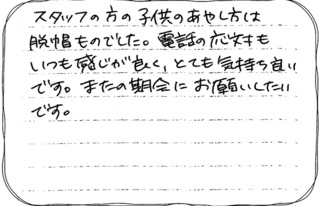 スタッフの方の子供のあやし方は
脱帽ものでした。電話の応対も
いつも感じが良く、とても気持ち良い
です。またの期会にお願いしたい
です。